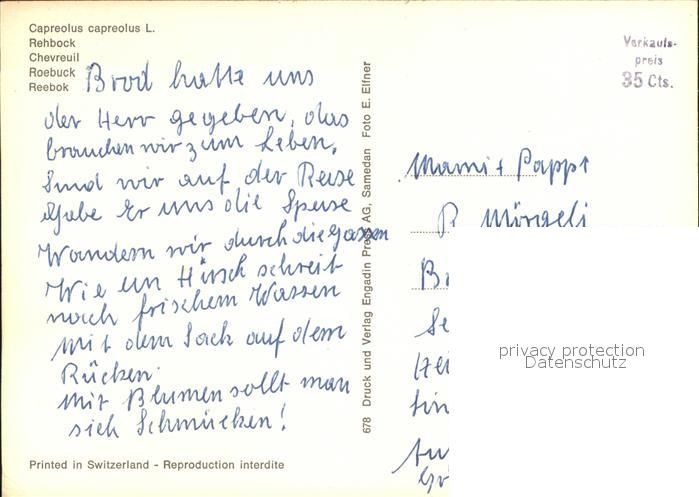 Capreolus capreolus L.
Rehbock
Chevreuil
Roebuck
Reebok
Brod hatte uns
der Herr gegeben, das
brauchen wir zum Leben,
Sind wir auf der Reise
Gabe Er uns die Speise
Wandern wir durch die Gassen
Wie ein Hirsch schreit
nach frischem Wasser
Mit dem Sack auf dem
Rücken.
Mit Blumen sollt man
sich Schmücken!
Printed in Switzerland - Reproduction interdite
678 Druck und Verlag Engadin Press AG, Samedan Foto E. Elfner
Verkaufs-
preis
35 Cts.
Mami + Pappi
P. Mörgeli
privacy protection
Datenschutz